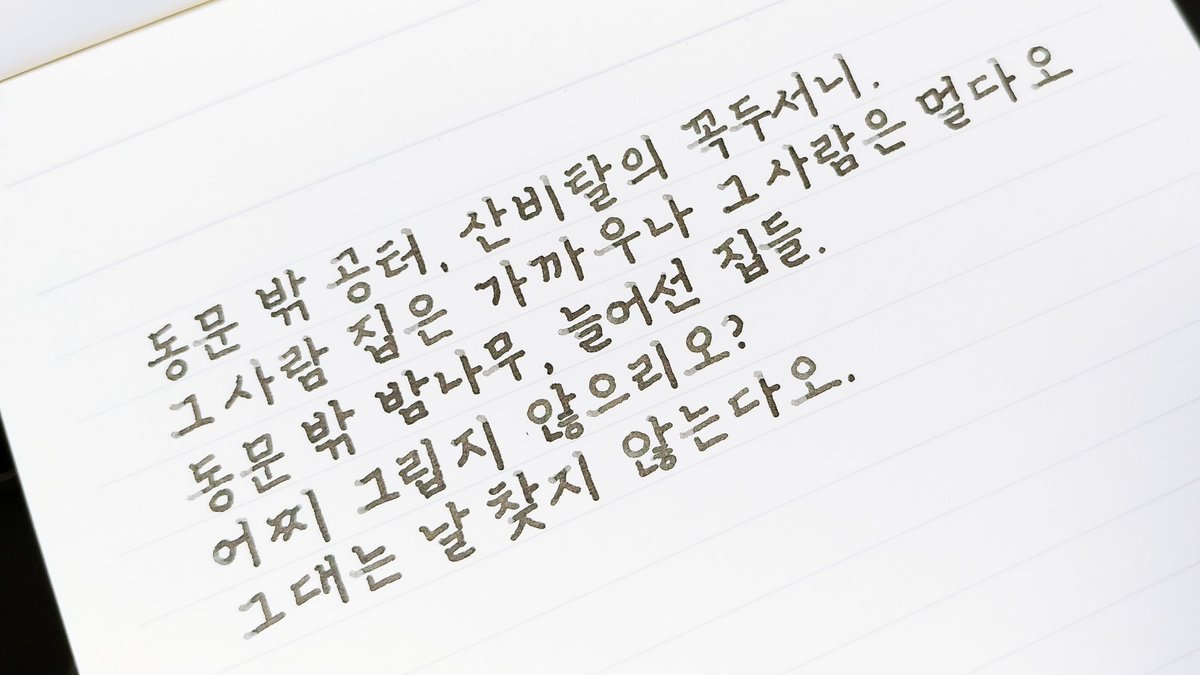 동문 밖 공터, 산비탈의 꼭두서니.
그사람 집은 가까우나 그사람은 멀다오
동문 밖 밤나무, 늘어선 집들.
어찌 그립지 않으리오?
그대는 날 찾지 않는다오.